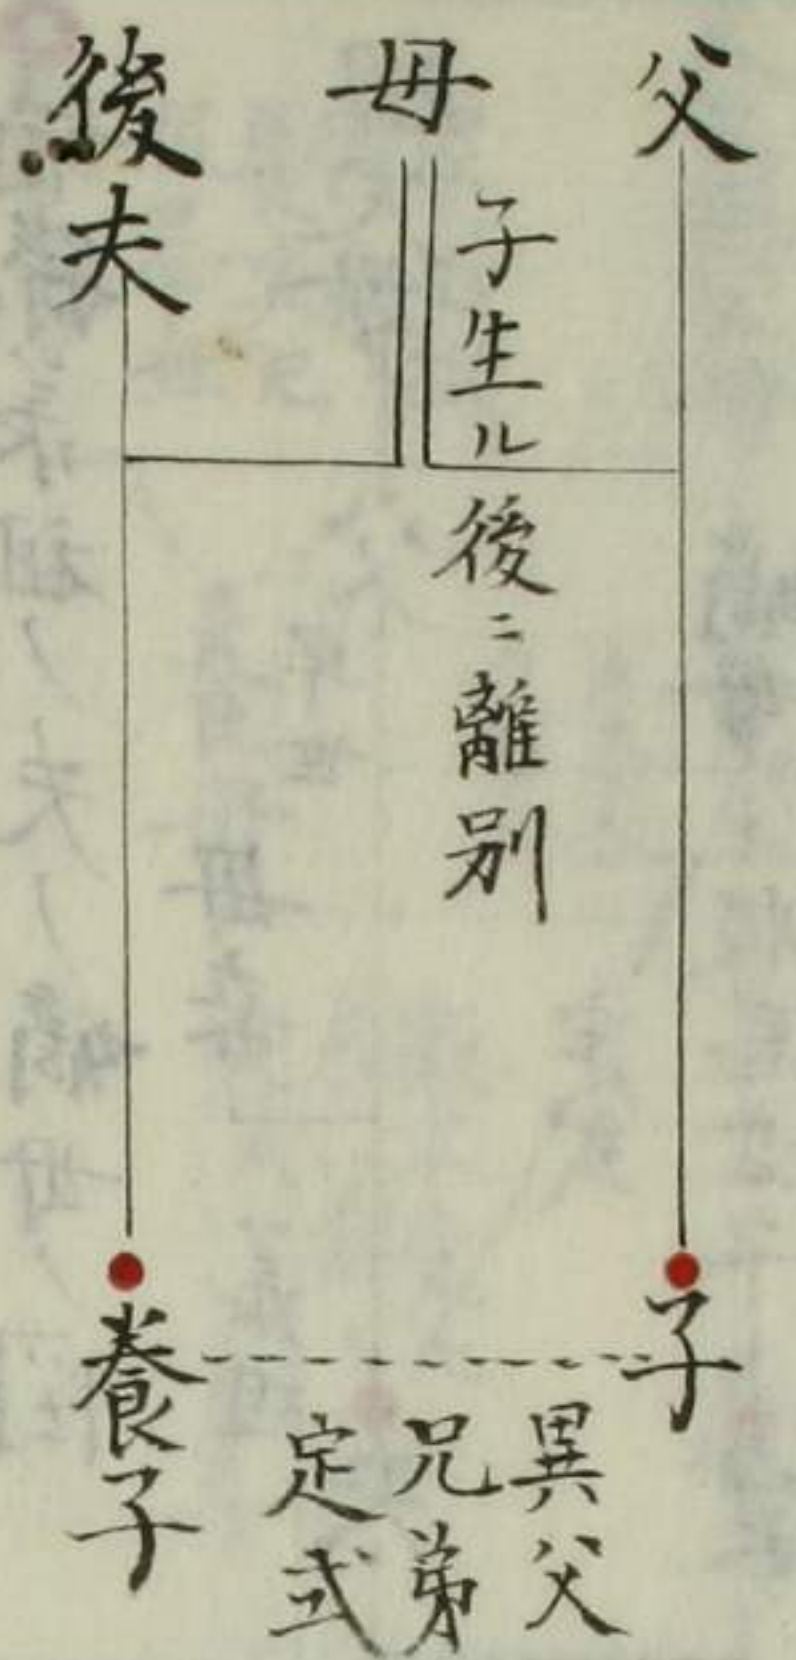 父
母
後夫
子生ル後ニ離別
子
養子
異父
兄弟
定式